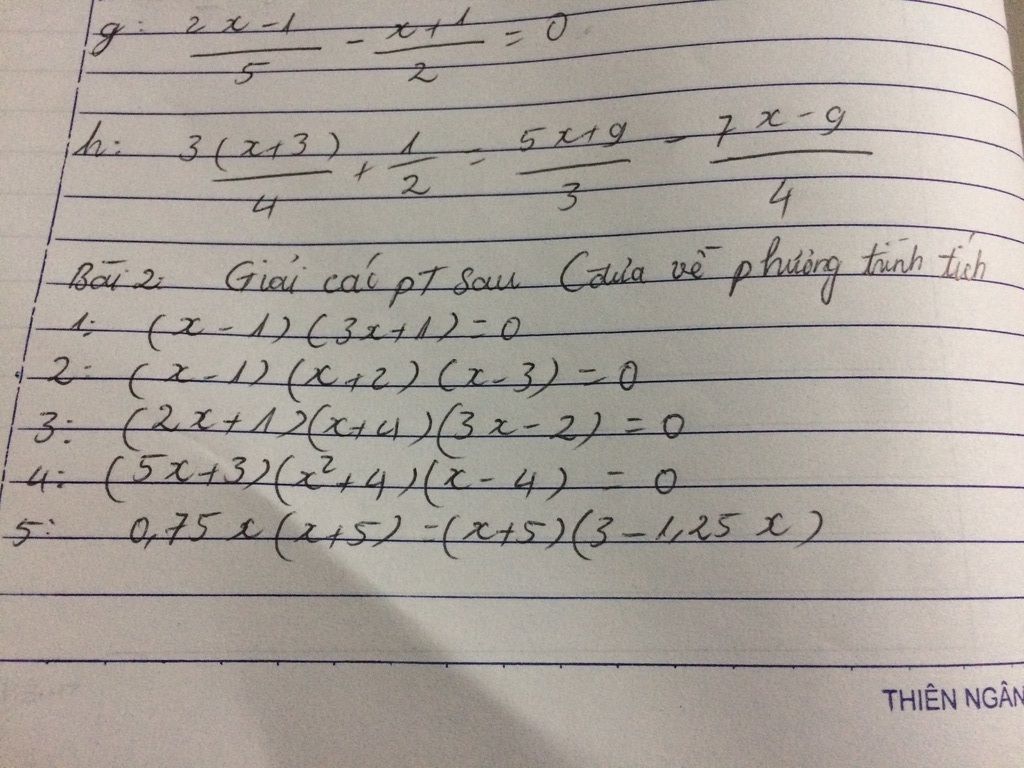 g: (2x-1)/5 - (x+1)/2 = 0
h: 3(x+3)/4 + 1/2 = (5x+9)/3 - (7x-9)/4
Bài 2: Giải các pT sau (đưa về phương trình tích
1: (x-1)(3x+1)=0
2: (x-1)(x+2)(x-3)=0
3: (2x+1)(x+4)(3x-2)=0
4: (5x+3)(x²+4)(x-4) = 0
5: 0,75x(x+5)=(x+5)(3-1,25x)
THIÊN NGÂN